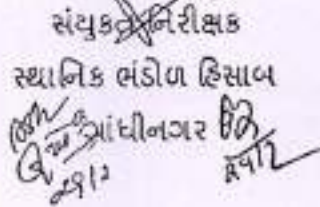 સંયુકત નિરીક્ષક
સ્થાનિક ભંડોળ હિસાબ
ગાંધીનગર